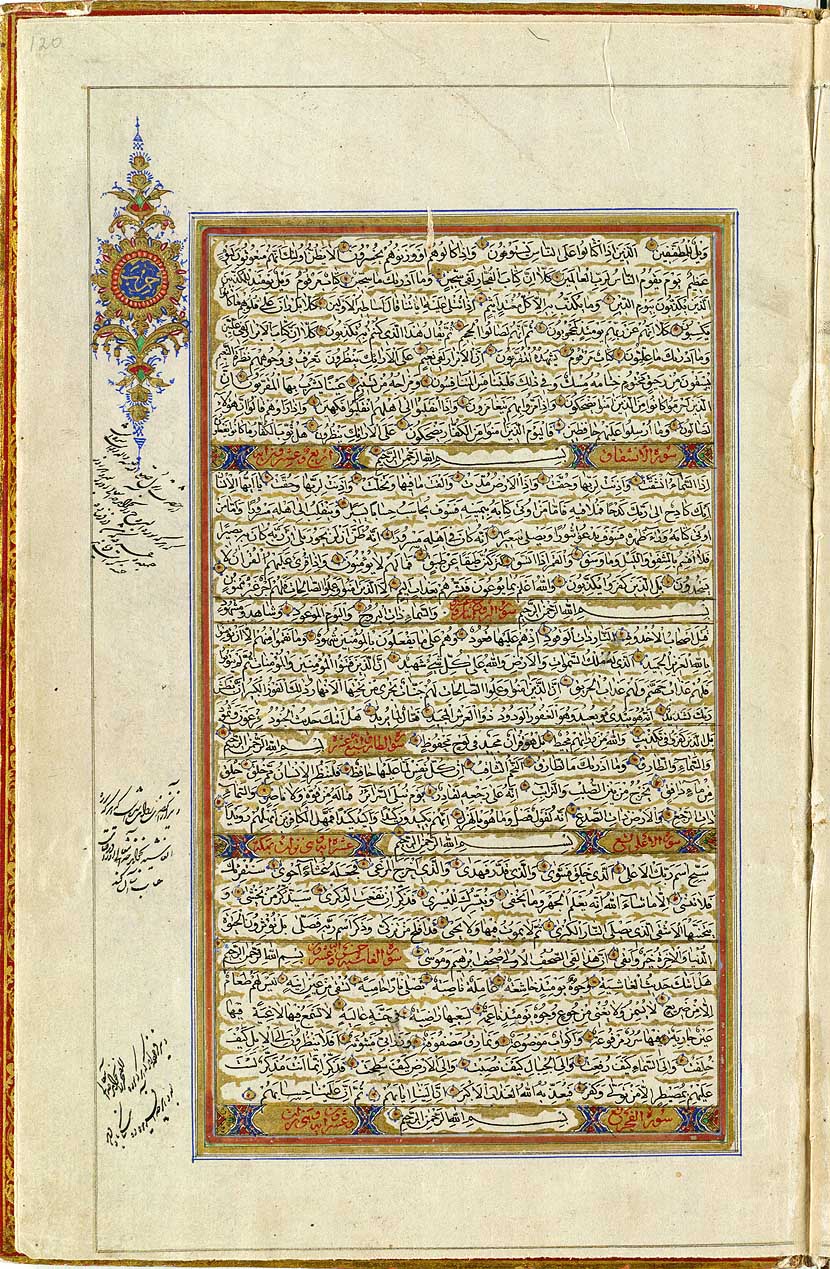 حزب
ويل للمطففين الذين اذا اكتالوا على الناس يستوفون واذا كالوهم او وزنوهم يخسرون الا يظن اولئك انهم مبعوثون ليوم
عظيم يوم يقوم الناس لرب العالمين كلا ان كتاب الفجار لفي سجين وما ادريك ما سجين كتاب مرقوم ويل يومئذ للمكذبين
الذين يكذبون بيوم الدين وما يكذب به الا كل معتد اثيم اذا تتلى عليه اياتنا قال اساطير الاولين كلا بل ران على قلوبهم ما كانوا
يكسبون كلا انهم عن ربهم يومئذ لمحجوبون ثم انهم لصالوا الجحيم ثم يقال هذا الذي كنتم به تكذبون كلا ان كتاب الابرار لفي عليين
وما ادريك ما عليون كتاب مرقوم يشهده المقربون ان الابرار لفي نعيم على الارائك ينظرون تعرف في وجوههم نضرة النعيم
يسقون من رحيق مختوم ختامه مسك وفي ذلك فليتنافس المتنافسون ومزاجه من تسنيم عينا يشرب بها المقربون ان
الذين اجرموا كانوا من الذين امنوا يضحكون واذا مروا بهم يتغامزون واذا انقلبوا الى اهلهم انقلبوا فكهين واذا راوهم قالوا ان هؤلاء
لضالون وما ارسلوا عليهم حافظين فاليوم الذين امنوا من الكفار يضحكون على الارائك ينظرون هل ثوب الكفار ما كانوا يفعلون
سورة الانشقاق بسم الله الرحمن الرحيم
اذا السماء انشقت واذنت لربها وحقت واذا الارض مدت والقت ما فيها وتخلت واذنت لربها وحقت يا ايها الانسان
انك كادح الى ربك كدحا فملاقيه فاما من اوتي كتابه بيمينه فسوف يحاسب حسابا يسيرا وينقلب الى اهله مسرورا واما من
اوتي كتابه وراء ظهره فسوف يدعوا ثبورا ويصلى سعيرا انه كان في اهله مسرورا انه ظن ان لن يحور بلى ان ربه كان به بصيرا
فلا اقسم بالشفق والليل وما وسق والقمر اذا اتسق لتركبن طبقا عن طبق فما لهم لا يؤمنون واذا قرئ عليهم القران لا
يسجدون بل الذين كفروا يكذبون والله اعلم بما يوعون فبشرهم بعذاب اليم الا الذين امنوا وعملوا الصالحات لهم اجر غير ممنون
سورة البروج بسم الله الرحمن الرحيم والسماء ذات البروج واليوم الموعود وشاهد ومشهود
قتل اصحاب الاخدود النار ذات الوقود اذ هم عليها قعود وهم على ما يفعلون بالمؤمنين شهود وما نقموا منهم الا ان يؤمنوا
بالله العزيز الحميد الذي له ملك السموات والارض والله على كل شيء شهيد ان الذين فتنوا المؤمنين والمؤمنات ثم لم يتوبوا
فلهم عذاب جهنم ولهم عذاب الحريق ان الذين امنوا وعملوا الصالحات لهم جنات تجري من تحتها الانهار ذلك الفوز الكبير ان بطش
ربك لشديد انه هو يبدئ ويعيد وهو الغفور الودود ذو العرش المجيد فعال لما يريد هل اتيك حديث الجنود فرعون وثمود
بل الذين كفروا في تكذيب والله من ورائهم محيط بل هو قران مجيد في لوح محفوظ سورة الطارق سبع عشرة بسم الله الرحمن الرحيم
والسماء والطارق وما ادريك ما الطارق النجم الثاقب ان كل نفس لما عليها حافظ فلينظر الانسان مم خلق خلق
من ماء دافق يخرج من بين الصلب والترائب انه على رجعه لقادر يوم تبلى السرائر فما له من قوة ولا ناصر والسماء
ذات الرجع والارض ذات الصدع انه لقول فصل وما هو بالهزل انهم يكيدون كيدا واكيد كيدا فمهل الكافرين امهلهم رويدا
سورة الاعلى تسع بسم الله الرحمن الرحيم عشرة اية
سبح اسم ربك الاعلى الذي خلق فسوى والذي قدر فهدى والذي اخرج المرعى فجعله غثاء احوى سنقرئك
فلا تنسى الا ما شاء الله انه يعلم الجهر وما يخفى ونيسرك لليسرى فذكر ان نفعت الذكرى سيذكر من يخشى و
يتجنبها الاشقى الذي يصلى النار الكبرى ثم لا يموت فيها ولا يحيى قد افلح من تزكى وذكر اسم ربه فصلى بل تؤثرون الحيوة
الدنيا والاخرة خير وابقى ان هذا لفي الصحف الاولى صحف ابرهيم وموسى سورة الغاشية بسم الله الرحمن الرحيم
هل اتيك حديث الغاشية وجوه يومئذ خاشعة عاملة ناصبة تصلى نارا حامية تسقى من عين انية ليس لهم طعام
الا من ضريع لا يسمن ولا يغني من جوع وجوه يومئذ ناعمة لسعيها راضية في جنة عالية لا تسمع فيها لاغية فيها
عين جارية فيها سرر مرفوعة واكواب موضوعة ونمارق مصفوفة وزرابي مبثوثة افلا ينظرون الى الابل كيف
خلقت والى السماء كيف رفعت والى الجبال كيف نصبت والى الارض كيف سطحت فذكر انما انت مذكر لست
عليهم بمصيطر الا من تولى وكفر فيعذبه الله العذاب الاكبر ان الينا ايابهم ثم ان علينا حسابهم
سورة الفجر بسم الله الرحمن الرحيم
120